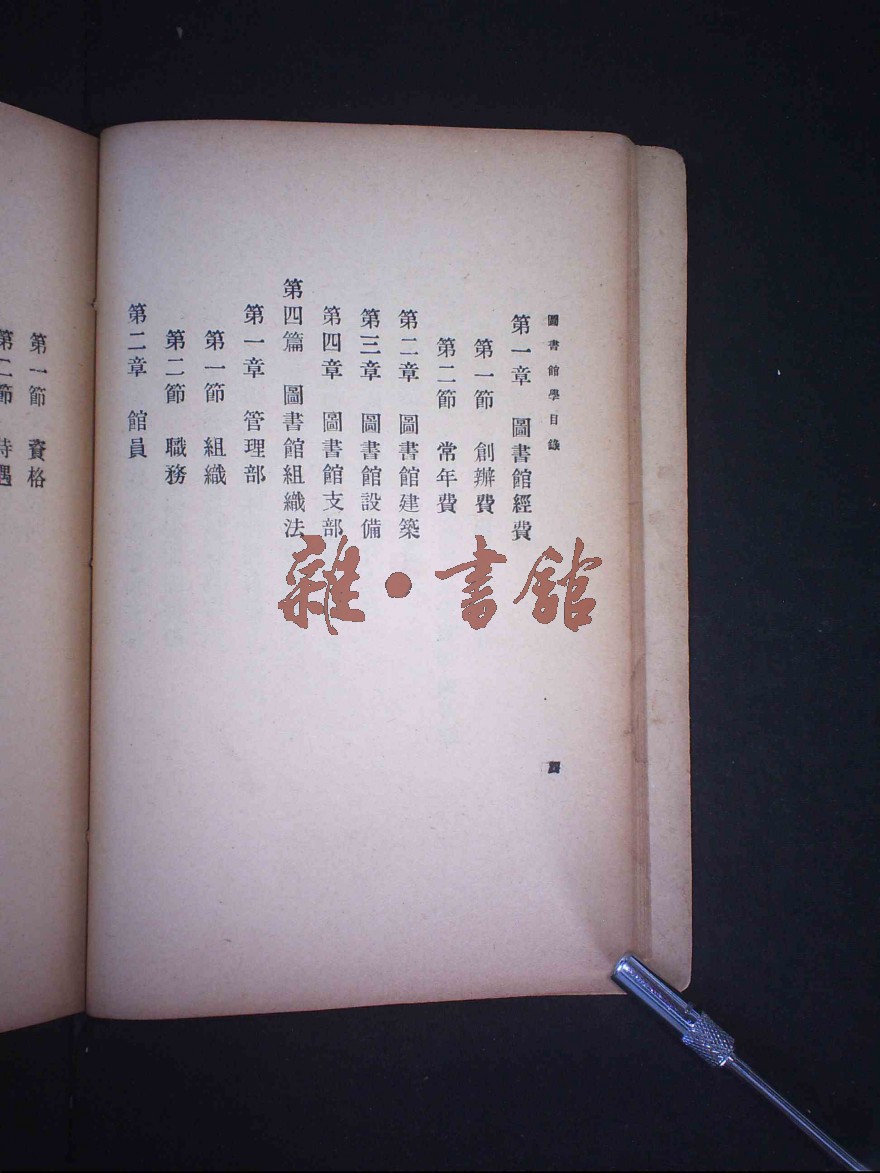 圖書館學目錄
第一章 圖書館經費
第一節 創辦費
第二節 常年費
第二章 圖書館建築
第三章 圖書館設備
第四章 圖書館支部
第四篇 圖書館組織法
第一章 管理部
第一節 組織
第二節 職務
第二章 館員
四
第一節 資格
第二節 待遇
雜·書館